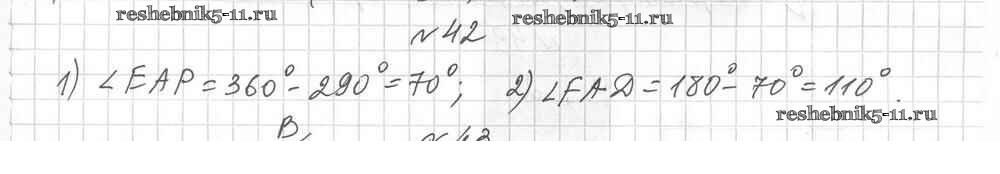 reshebnik5-11.ru
reshebnik5-11.ru
№42
1) ∠EAP = 360° - 290° = 70°; 2) ∠FAD = 180° - 70° = 110°.
reshebnik5-11.ru
B